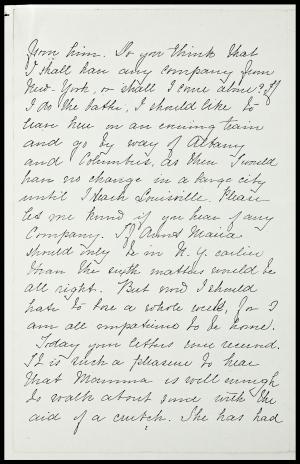 from him. Do you think that
I shall have any company from
New-York, or shall I come alone? If
I do the latter, I should like to
leave here on an evening train
and go by way of Albany
and Columbus, as then I would
have no change in a large city
until I reach Louisville. Please
let me know if you hear of any
Company. If Aunt Maria
should only be in N. Y. earlier
than the sixth matters would be
all right. But now I should
hate to lose a whole week, for I
am all impatience to be home.
Today your letters were received.
It is such a pleasure to hear
that Mamma is well enough
to walk about some with the
aid of a crutch. She has had